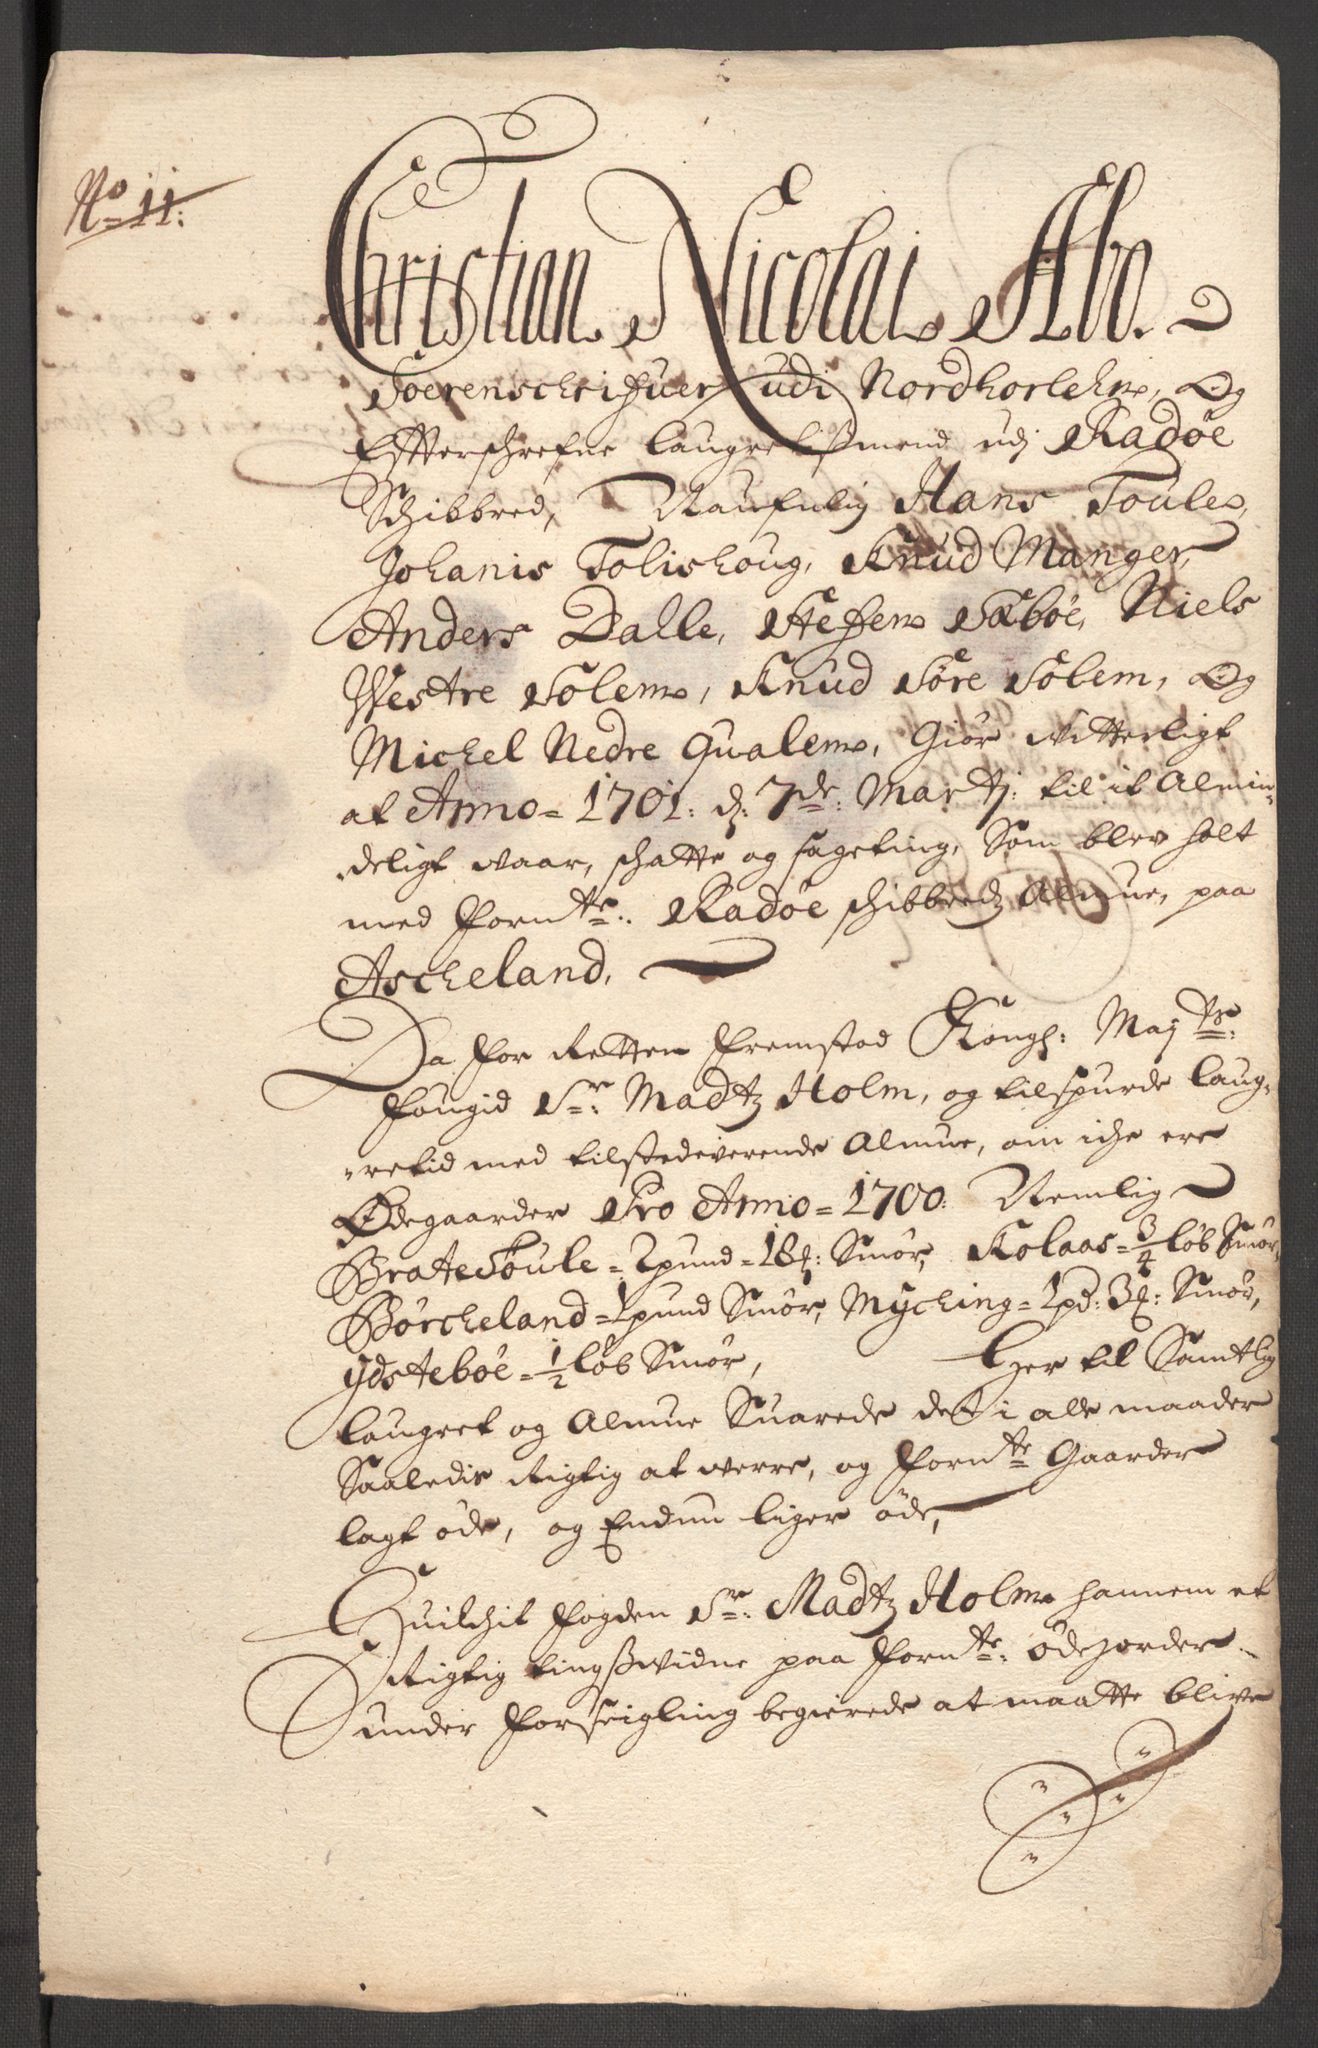 No 11:
Christian Nicolai Abo.
Soerenschrifuer udi Nordhorlehn, Og
Effterschrefne laugrettismend udj Radøe
Schibbred, Naufnlig Hans Toule,
Johanis Tolishoug, Knud Manger,
Anders Dalle, Steffen Sæbøe, Niels
Westre Solem, Knud Søre Solem, Og
Michel Nedre Qualem, Giør Witterligt
at Anno = 1701: d: 7de: Martj: til it Almin-
deligt waar, schatte og sageting, Som blev holt
med forn te: Radøe schibbredz Almue, paa
Ascheland,
Da for Retten fremstod Kongl: Maj ts:
fougid Sr: Madtz Holm, og tilspurde laug-
rettid med tilstedeverende Almue, om iche ere
Ødegaarder Pro Anno = 1700: Nemlig
Brate Soule = 2 pund = 18 #: Smør, Kolaas = 3/4 løb Smør,
Børcheland = 1 pund Smør, Myching = 1 pd: 3 #: Smør,
Ydstebøe = 1/2 løb Smør, Her til Samtlig
laugret og Almue Suarede det i alle maader
Saaledis Rigtig at werre, og forn te Gaarder
lagt øde, og Endnu liger øde,
Huilchit fogden Sr: Madtz Holm hannem et
Rigtig tingsswidne paa forn te: ødejorder
under forseigling begierede at maatte blive